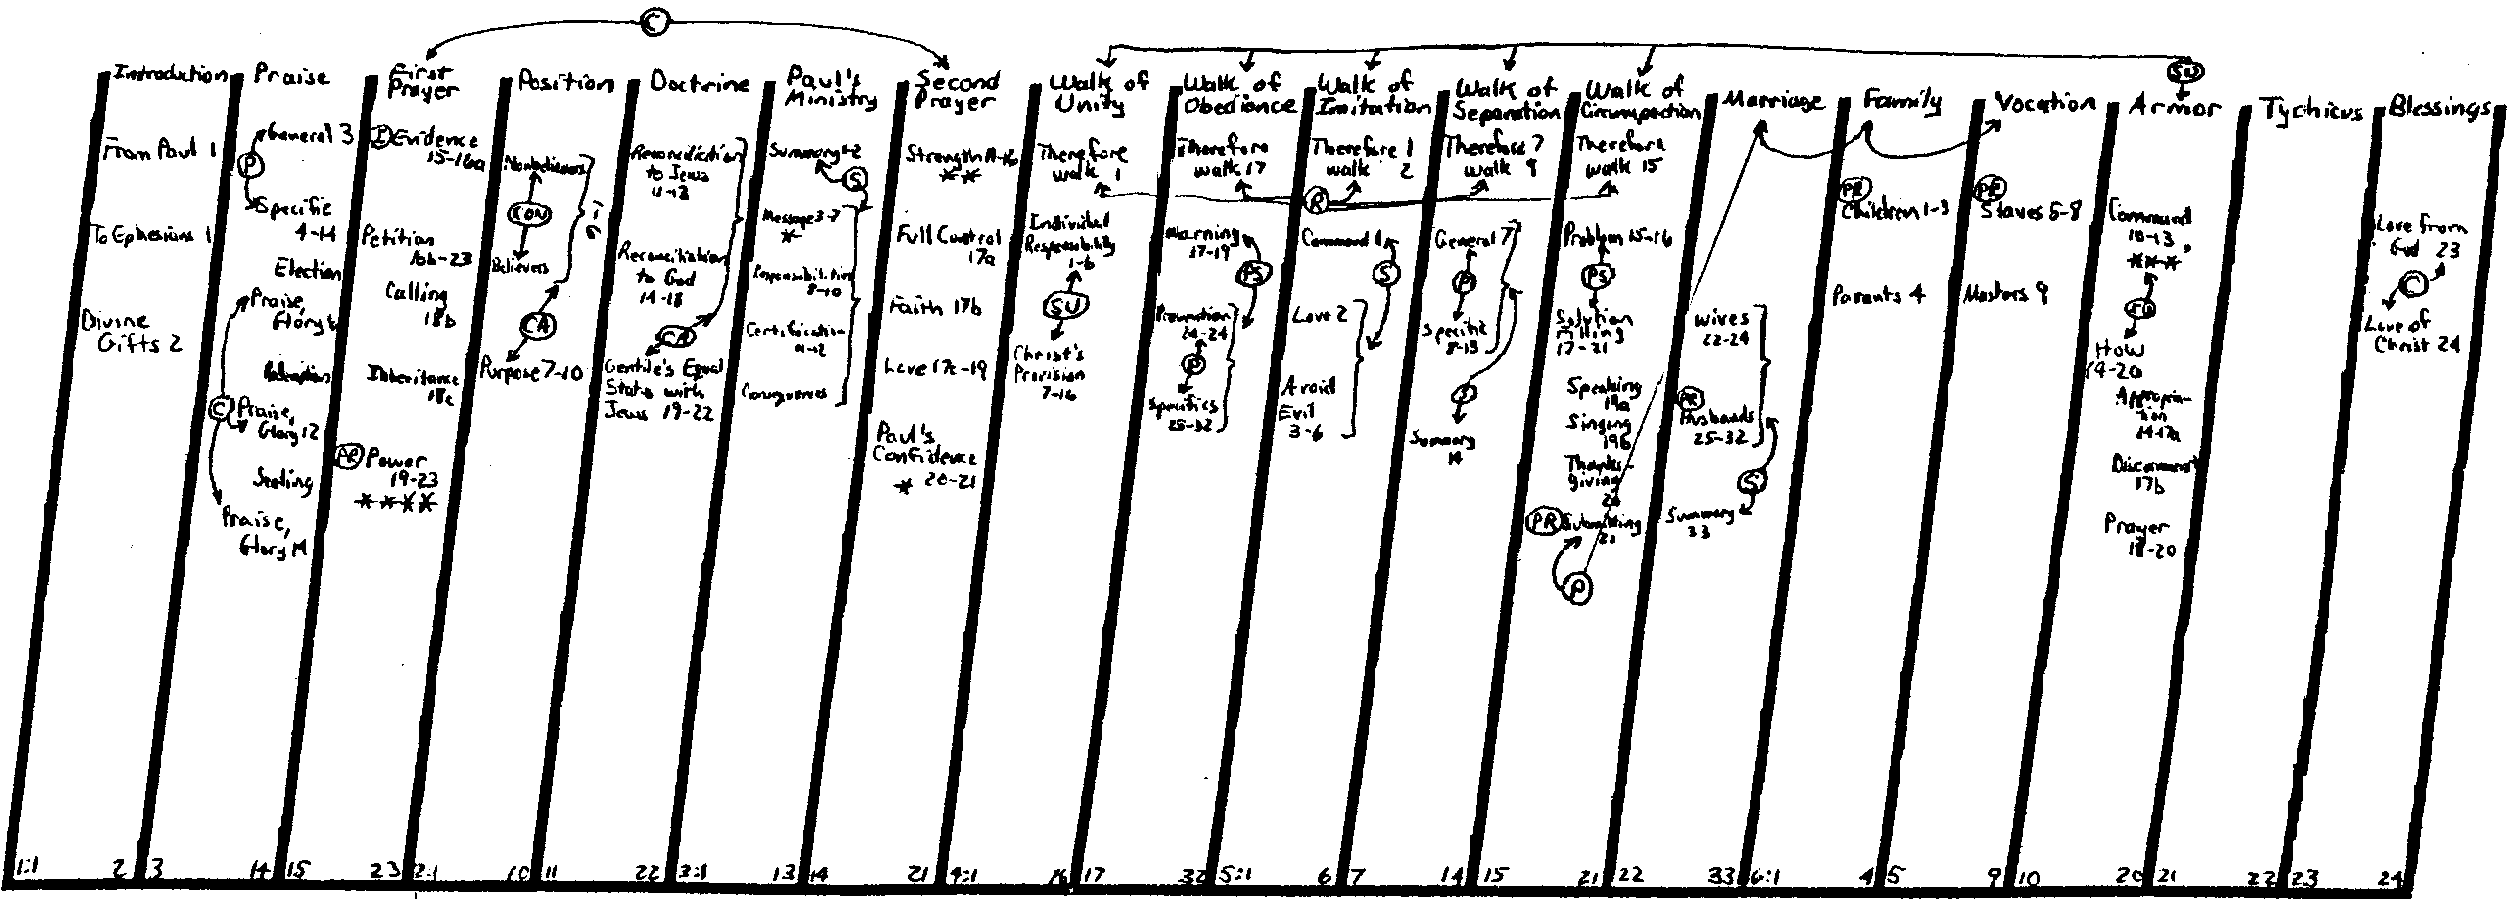 C
SU
Introduction
From Paul 1
To Ephesians 1
Divine
Gifts 2
Praise
General 3
P
Specific
4-14
Election
Praise,
Glory 6
Redemption
C
Praise,
Glory 12
Sealing
Praise,
Glory 14
First
Prayer
I
Evidence
15-16a
Petition
16b-23
Calling
18b
Inheritance
18c
PR
Power
19-23
****
Position
Nonbelievers
CON
Believers
CA
Purpose 7-10
Doctrine
Reconciliation
to Jews
11-13
Reconciliation
to God
14-18
CA
Gentile's Equal
Status with
Jews 19-22
Paul's
Ministry
Summary 1-2
S
Message 3-7
*
Responsibilities
8-10
Certification
11-12
Consequences
Second
Prayer
Strength 14-16
**
Full Control
17a
Faith 17b
Love 17c-19
Paul's
Confidence
* 20-21
Walk of
Unity
Therefore
walk 1
Individual
Responsibility
1-6
SU
Christ's
Provision
7-16
Walk of
Obediance
Therefore
walk 17
Warning
17-19
PS
Prevention
20-24
P
Specifics
25-32
Walk of
Imitation
Therefore 1
walk 2
R
Command 1
S
Love 2
Avoid
Evil
3-6
Walk of
Separation
Therefore 7
walk 8
General 7
P
Specific
8-13
S
Summary
14
Walk of
Circumspection
Therefore
walk 15
Problem 15-16
PS
Solution
Filling
17-21
Speaking
19a
Singing
19b
Thanks-
giving
20
PR
Submitting
21
P
Marriage
Wives
22-24
PR
Husbands
25-32
S
Summary
33
Family
PR
Children 1-3
Parents 4
Vocation
PR
Slaves 5-8
Masters 9
Armor
Command
10-13
***
How
14-20
Appropria-
tion
14-17a
Discernment
17b
Prayer
18-20
Tychicus
Blessings
Love from
God 23
C
Love of
Christ 24
1:1 2 3 14 15 23 2:1 10 11 22 3:1 13 14 21 4:1 16 17 32 5:1 6 7 14 15 21 22 33 6:1 4 5 9 10 20 21 22 23 24